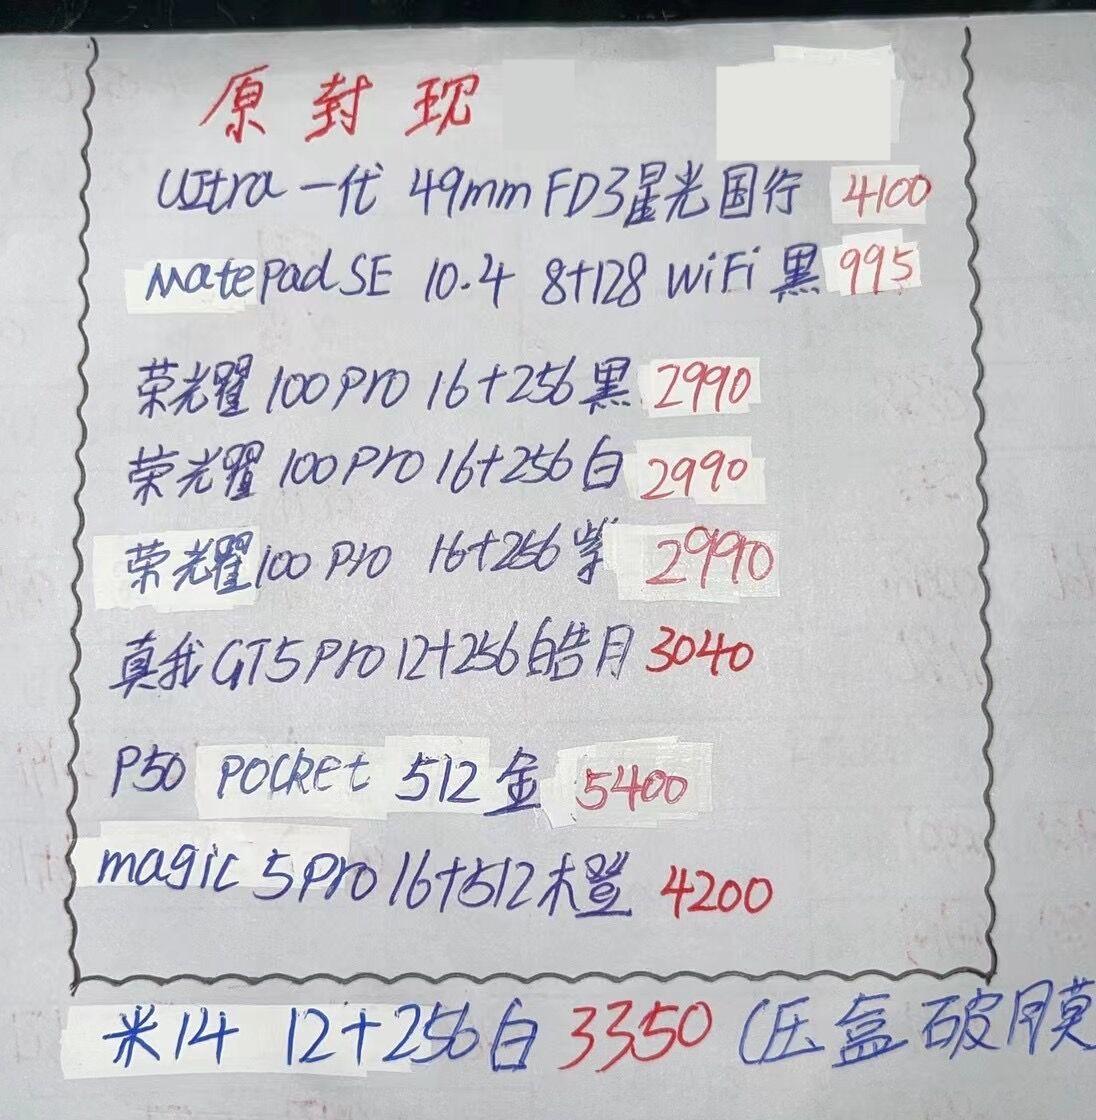 原封现
Ultra 一代 49mm FD3星光国行 4100
MatePad SE 10.4 8+128 WiFi 黑 995
荣光耀 100 Pro 16+256 黑 2990
荣光耀 100 Pro 16+256 白 2990
荣光耀 100 Pro 16+256 紫 2990
真我 GT5 Pro 12+256 皓月 3040
P50 POCKET 512 金 5400
magic 5 Pro 16+512 橙 4200
米14 12+256 白 3350 (压盒破膜